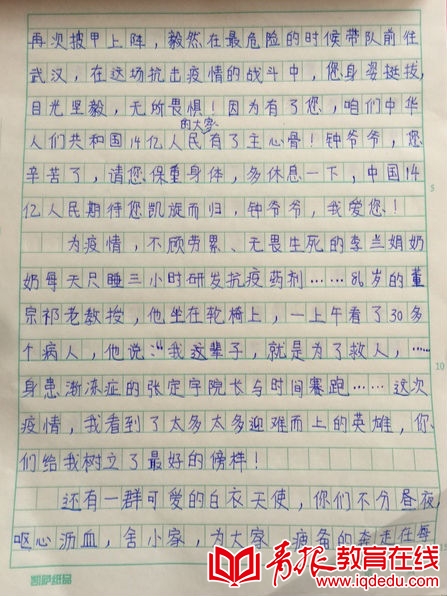 再次披甲上阵，毅然在最危险的时候带队前往
武汉，在这场抗击疫情的战斗中，您身姿挺拔，
目光坚毅，无所畏惧！因为有了您，咱们中华
的大家
人们共和国14亿人民有了主心骨！钟爷爷，您
辛苦了，请您保重身体，多休息一下，中国14
亿人民期待您凯旋而归，钟爷爷，我爱您！
为疫情，不顾劳累、无畏生死的李兰娟奶
奶每天只睡三小时研发抗疫药剂……86岁的董
宗祁老教授，他坐在轮椅上，一上午看了30多
个病人，他说：“我这辈子，就是为了救人，……
身患渐冻症的张定宇院长与时间赛跑……这次
疫情，我看到了太多太多迎难而上的英雄，你
们给我树立了最好的傍样！
还有一群可爱的白衣天使，你们不分昼夜，
呕心沥血，舍小家，为大家，疲惫的奔走在每
凯萨纸品
5
10
青报教育在线
www.iqdedu.com